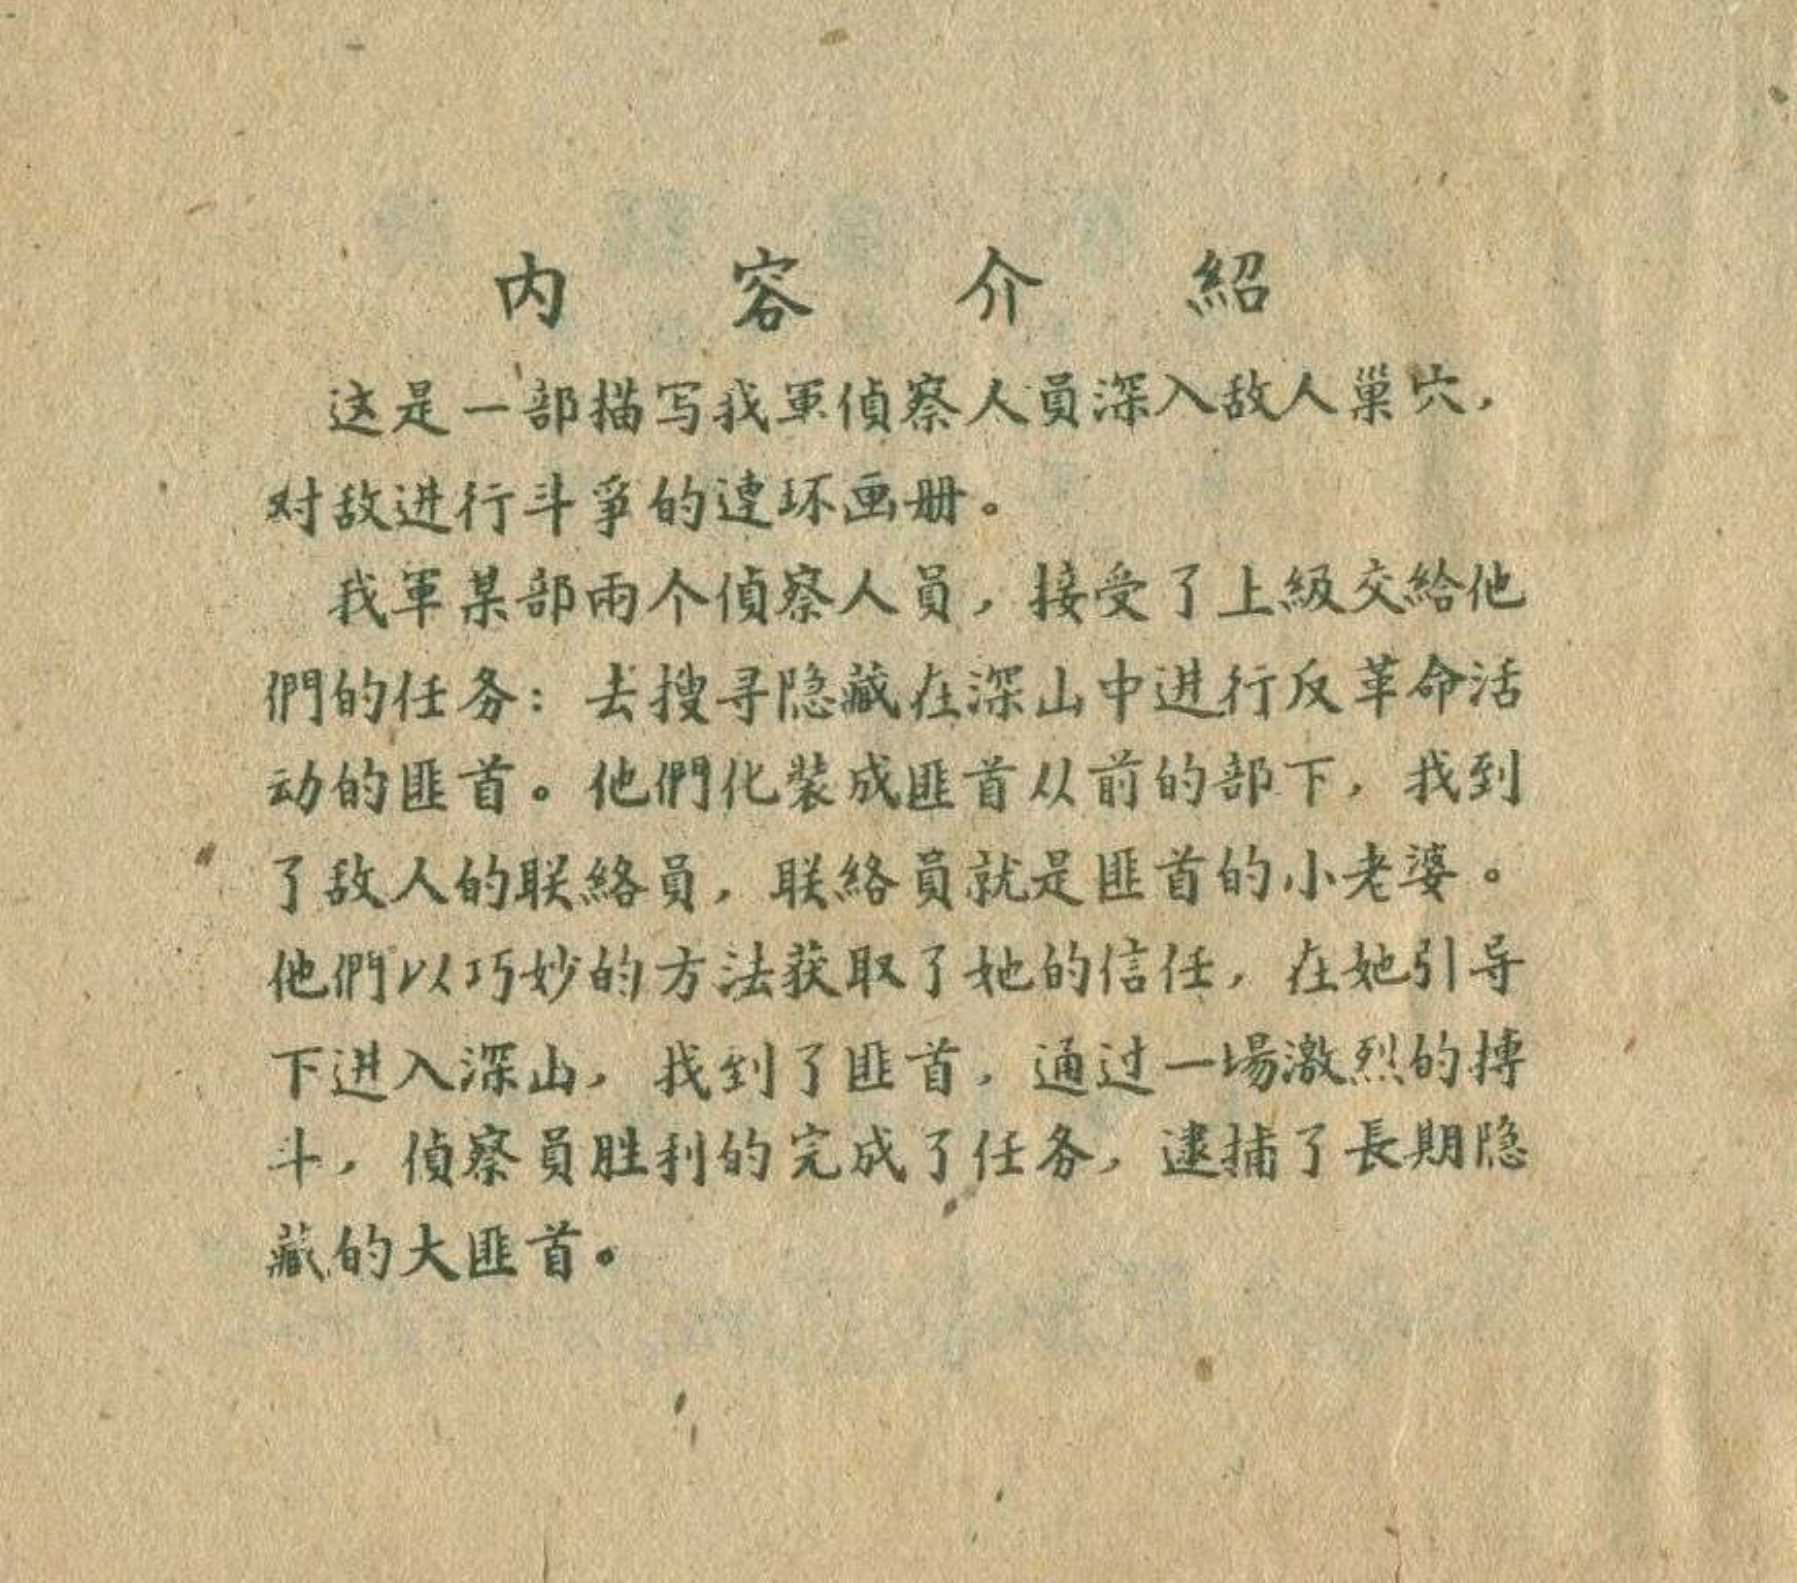 内容介紹
这是一部描写我軍偵察人員深入敌人巢穴，
对敌进行斗爭的連环画册。
我軍某部兩个偵察人員，接受了上級交給他
們的任务：去搜寻隐藏在深山中进行反革命活
动的匪首。他們化裝成匪首从前的部下，找到
了敌人的联絡員，联絡員就是匪首的小老婆。
他們以巧妙的方法获取了她的信任，在她引导
下进入深山，找到了匪首，通过一場激烈的搏
斗，偵察員胜利的完成了任务，逮捕了長期隐
藏的大匪首。